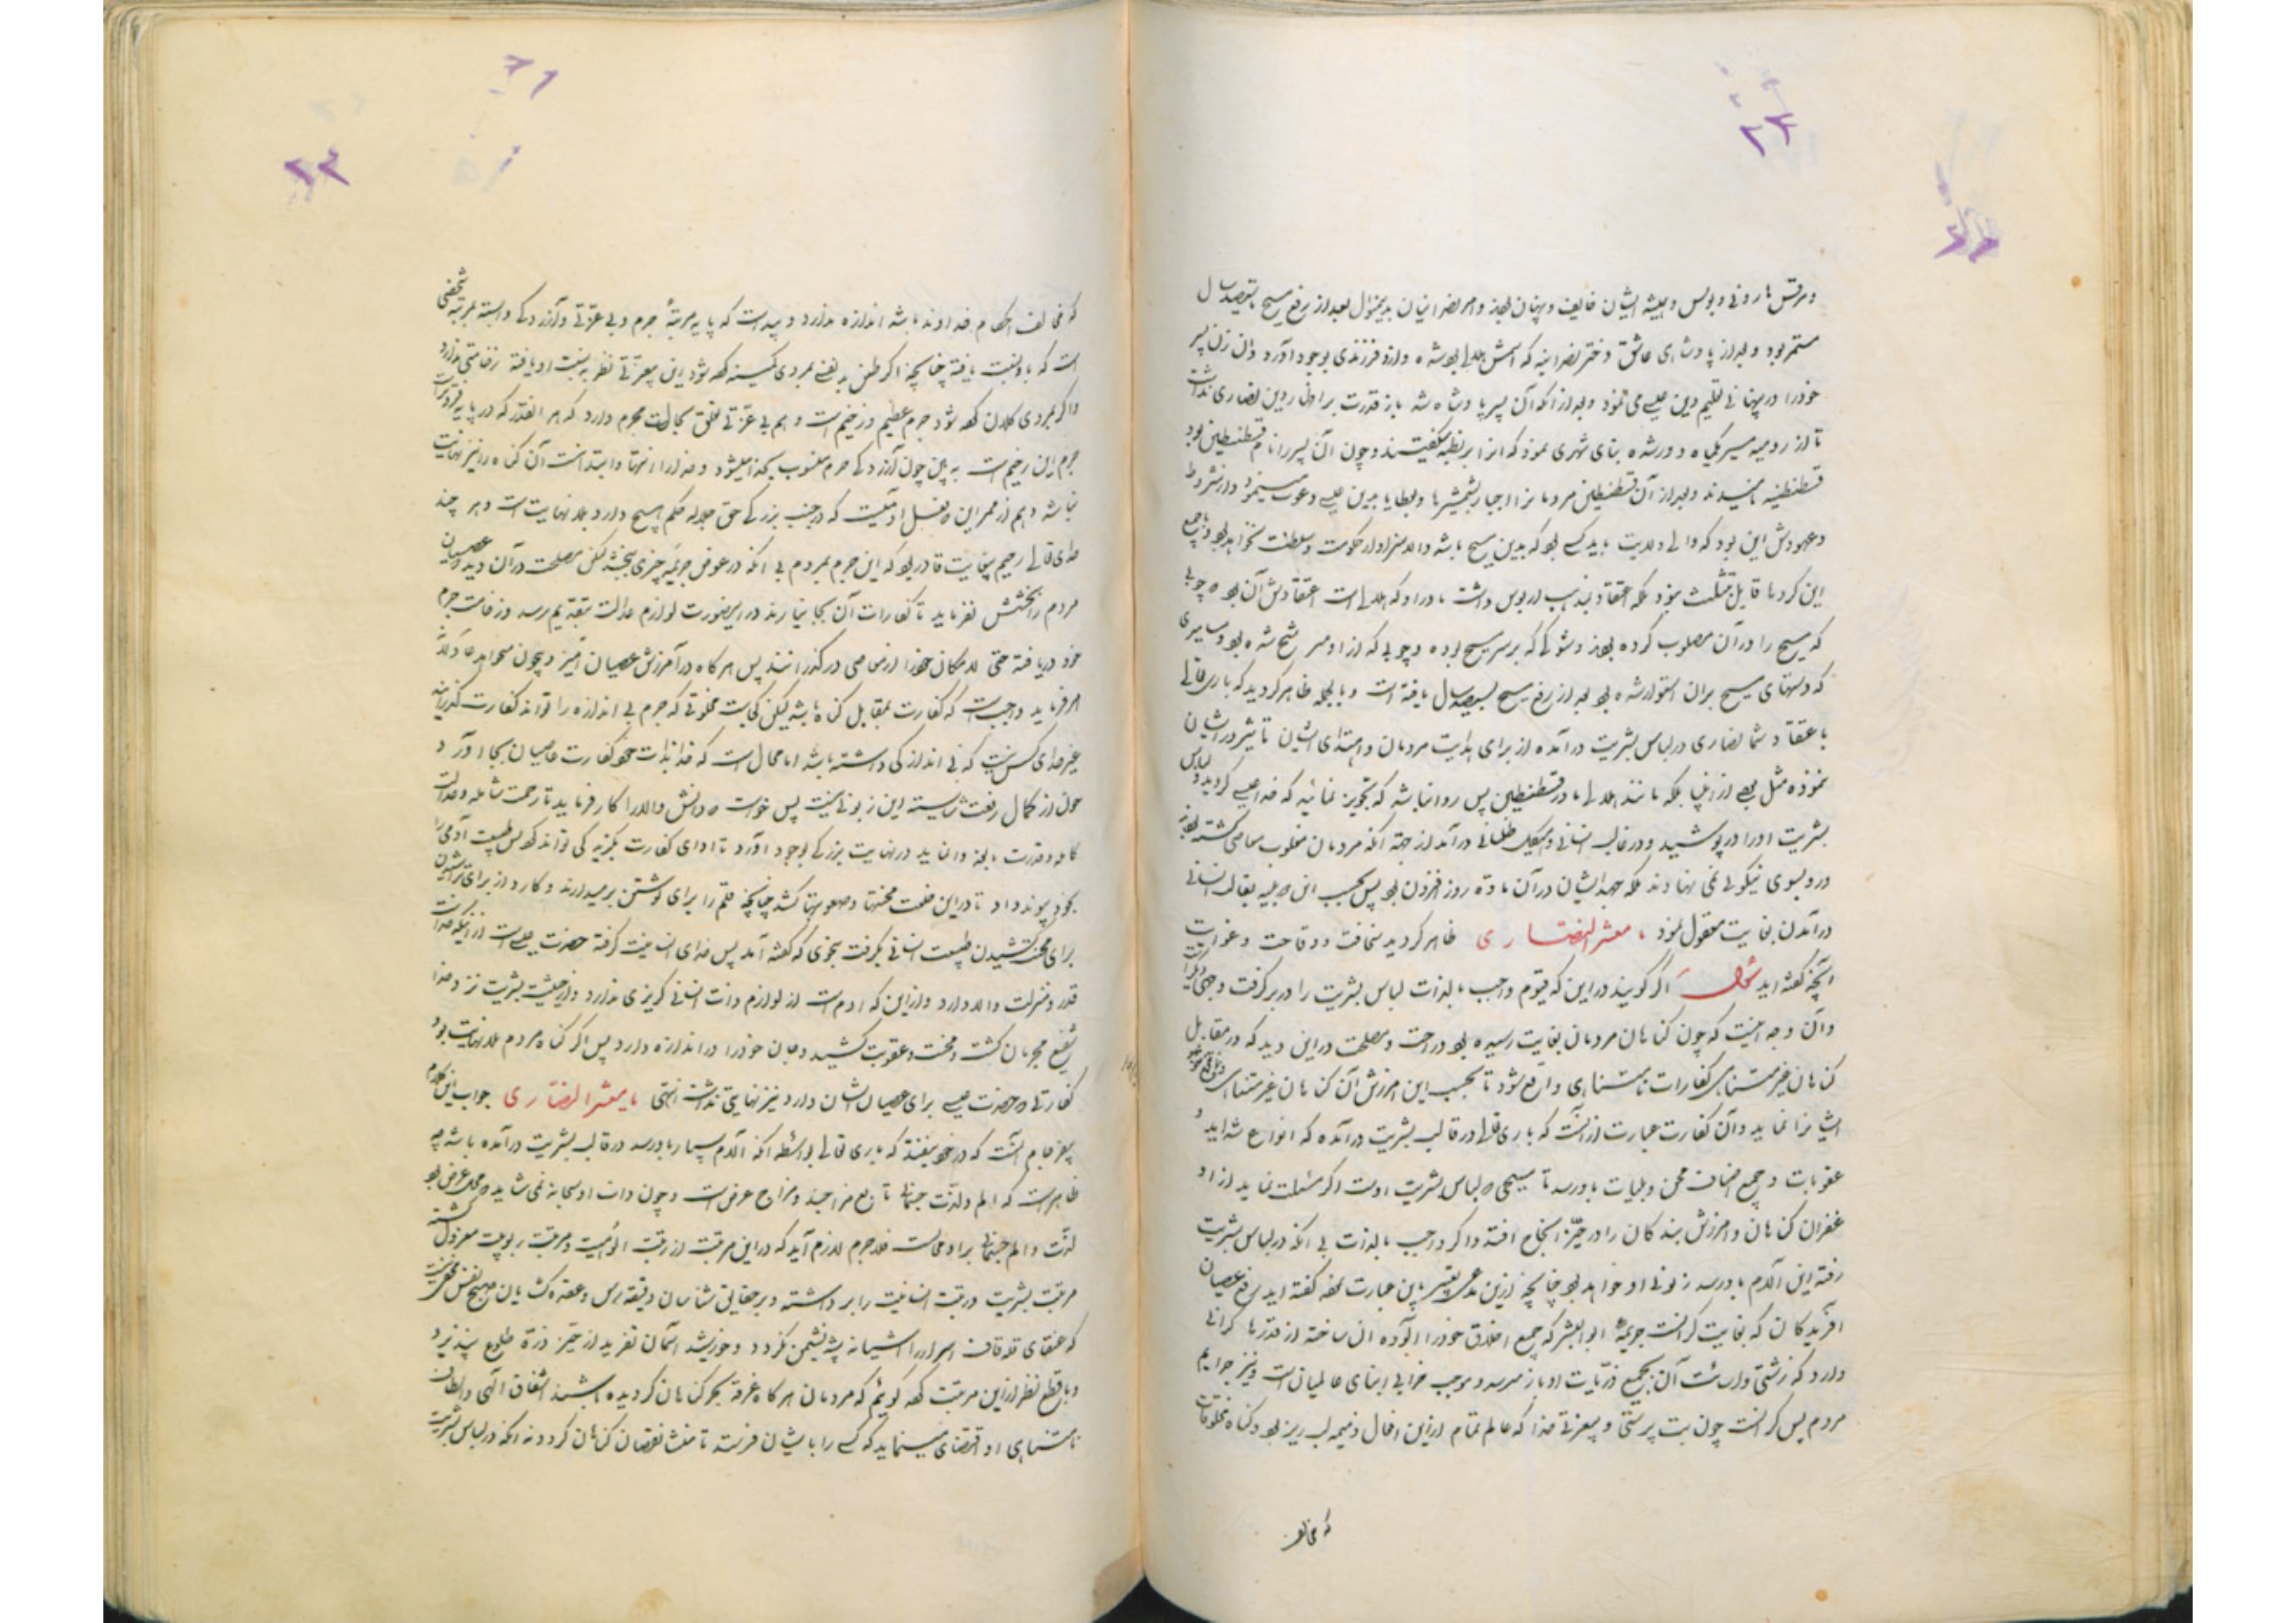 ومرقس مارونی و بولس و همیشه ایشان خایف و پنهان بودند و امر نصرانیان بدینمنوال بعد از رفع مسیح بتوصد سال
مستمر بود و بعد از پادشاهی عاشق دختر نصرانیه که اسمش هلانه بود شده و از و فرزندی بوجود آورد و آن زن پسر
خود را در پنهانی تعلیم دین عیسی می نمود و بعد از آنکه آن پسر پادشاه شد باز قدرت بر اظهار دین نصاری نداشت
تا از رومیه سیر یکماه دور شده بنای شهری نمود که انرا بزنطیه میگفتند و چون آن پسر را نام قسطنطین بود
قسطنطنیه نامیدند و بعد از آن قسطنطین مردمانرا اجبار بشمشیرها و بعطایا بدین عیسی دعوت مینمود و از شروط
وعهودش این بود که والی ولایت باید کسی بود که بدین مسیح باشد والا سزاوار حکومت و سلطنت نخواهد بود و با جمیع
این کردها قایل بتثلیث نبود بلکه اعتقاد بمذهب اریوس داشت مادر او که هلانه است اعتقادش آن بود چوبی
که مسیح را در آن مصلوب کرده بودند و شوکی که بر سر مسیح بوده و چوبی که از او مسر شح شده بود و مسامیری
که دستهای مسیح بران استوار شده بود بعد از رفع مسیح بسیصد سال یافته است و بالجمله ظاهر کردید که باری تعالی
باعتقاد شما نصاری در لباس بشریت در آمده از برای هدایت مردمان و اهتدای ایشان تاثیر در ایشان
ننموده مثل بعضی از انبیا بلکه مانند هلانه مادر قسطنطین پس روا نباشد که تجویز نمائید که خدا عیسی کردید و لباس
بشریت او را در پوشید و در قالب انسانی و هیکل ظلمانی در آمد از جهة آنکه مردمان مغلوب معاصی کشته بودند
و رو بسوی نیکوئی نمی نهادند بلکه جهد ایشان در آن ماده روز افزون بود پس بحسب این بقالب انسانی
در آمدن بغایت معقول نمود ، معشر النصاری ظاهر کردید سخافت و وقاحت و غوایت
آنچه گفته اید سؤال اگر گویند در این که قیوم واجب بالذات لباس بشریت را در بر گرفت وجهی
وآن وجه اینست که چون گناهان مردمان بغایت رسیده بود راحت و مصلحت در این دید که در مقابل
گناهان غیر متناهی کفارات نامتناهی واقع شود تا بحسب این امرزش آن گناهان غیر متناهی
ایشانرا نماید وآن کفارت عبارت از آنست که باری تعالی در قالب بشریت در آمده که انواع شداید و
عقوبات و جمیع اصناف محن و بلیات باو رسد تا مسیحی لباس بشریت اوست اگر مسئلت نماید از او
غفران گناهان و امرزش بندکان را در حیّز انجاح افتد و اگر واجب بالذات بی آنکه در لباس بشریت
رفته این آلام باو رسد زبونی او خواهد بود چنانچه این عبارت گفته اید رفع عصیان
آفریدگان که بغایت گرانست جریمهٔ ابوالبشر که جمیع اخلاق خود را آلوده آن ساخته از قدرها گرانی
دارد که زشتی وارثت آن بجمیع ذرّیات او باز میرسد و موجب خرابی ابنای عالمیان است و نیز جرایم
مردم پس گرانست چون بت پرستی و بیعزتی خدا که عالم تمام از این افعال ذمیمه لبریز بود و گناه مخلوقات
که مخالف
که مخالف احکام خداوند باشد اندازه ندارد و پیداست که پایه مرتبهٔ جرم و بی عزّتی و آزردگی وابسته بمرتبه شخصی
است که باو نسبت یافته چنانچه اگر طعن یا لعنی بمردی کمینه کهه شود این بیعزتی نظر به نسبت او یافته زخامتی ندارد
و اگر بمردی کلان کهه شود جرم عظیم و زخیم است و هم بی عزّتی تعلق بحالت مجرم دارد که هر انقدر که در پایه فروتر است
جرم این زخیم است پس چون آزردگی جرم منسوب بخدا میشود و خدا را انتها و ابتدا نیست آن گناه را نیز نهایت
نباشد و هم از ممر این فعل آدمیت که در جنب بزرگی حق جلاله حکم هیچ دارد بلا نهایت است و هر چند
خدای تعالی رحیم بغایت قادر بود که این جرم بمردم بی آنکه در عوض جریمه چیزی بخشد لیکن مصلحت در آن دید و عصیان
مردم را بخشش نفرماید تا کفارات آن بجا نیارند در اینصورت لوازم عدالت بتقدیم رسد و زخامت جرم
خود دریافته حتی الامکان خود را از معاصی در گذرانند پس هر گاه در آمرزش عصیان
امر فرماید واجب است که کفارت بمقابل گناه باشد لیکن کی است مخلوقی که جرم بی اندازه را تواند کفارت گذرانید
غیر خدای کسی نیست که نی اندازگی داشته باشد اما محال است که خدا بذات خود کفارت عاصیان بجا آورد
چون از کمال رفعت شایسته این زبونی نیست پس خواست دانش والا را کار فرماید تا رحمت شامله و عدالت
کامله و قدرت بالغه وانماید در نهایت بزرگی بوجود آورد تا ادای کفارت بگزید کی تواند که پس طبیعت آدمی را
بخود پیوند داد تا در این خلعت محنتها و صعوبتها کشد چنانچه قلم را برای نوشتن بر میدارند و کارد از برای تراشیدن
برای محنت کشیدن طبیعت انسانی بگرفت بنحوی که گفته آمد پس خدای انسانیت گرفته حضرت عیسی است از آنکه خداست
قدر و منزلت والا دارد و از این که آدم است از لوازم ذات انسانی گریزی ندارد و از حیثیت بشریت نزد خدا
شفیع مجرمان گشت و محنت و عقوبت کشید و جان خود را در اندازه دارد پس اگر گناه مردم بلا نهایت بود
کفارتی حضرت عیسی برای عصیان ایشان دارد نیز نهایتی نداشت انتهی یا معشر النصاری جواب این کلام
آنست که در خود بیفتند که باری تعالی بواسطه آنکه آلام بسیار باو رسد در قالب بشریت در آمده باشد چه
ظاهر است که الم ولذّت جسمانی تابع مزاجند و مزاج عرض است و چون ذات او سبحانه نمی شاید محل عرض بود
لذّت و الم جسمانی بر او محالست فلا جرم لازم آید که در این مرتبت از رتبت الوهیت و مرتبت ربوبیت معزول گشته
مرتبت بشریت و رتبت انسانیت را بر داشته و بر حقایق شناسان دقیقه رس و عقده گشایان صبح نفس مخفی نیست
که عنقای قله قاف اسرار را آشیانه پشه نشیمن نگردد و خورشید آسمان تفرید از حیّز ذرّة طلوع نپذیرد
و با قطع نظر از این مرتبت کهه گوئیم که مردمان هر گاه غرقه بحر گناهان گردیده باشند اشفاق الهی و الطاف
نامتناهی او اقتضای مینماید که کسی را بایشان فرستد تا باعث نقصان گناهان گردد نه آنکه در لباس بشریت